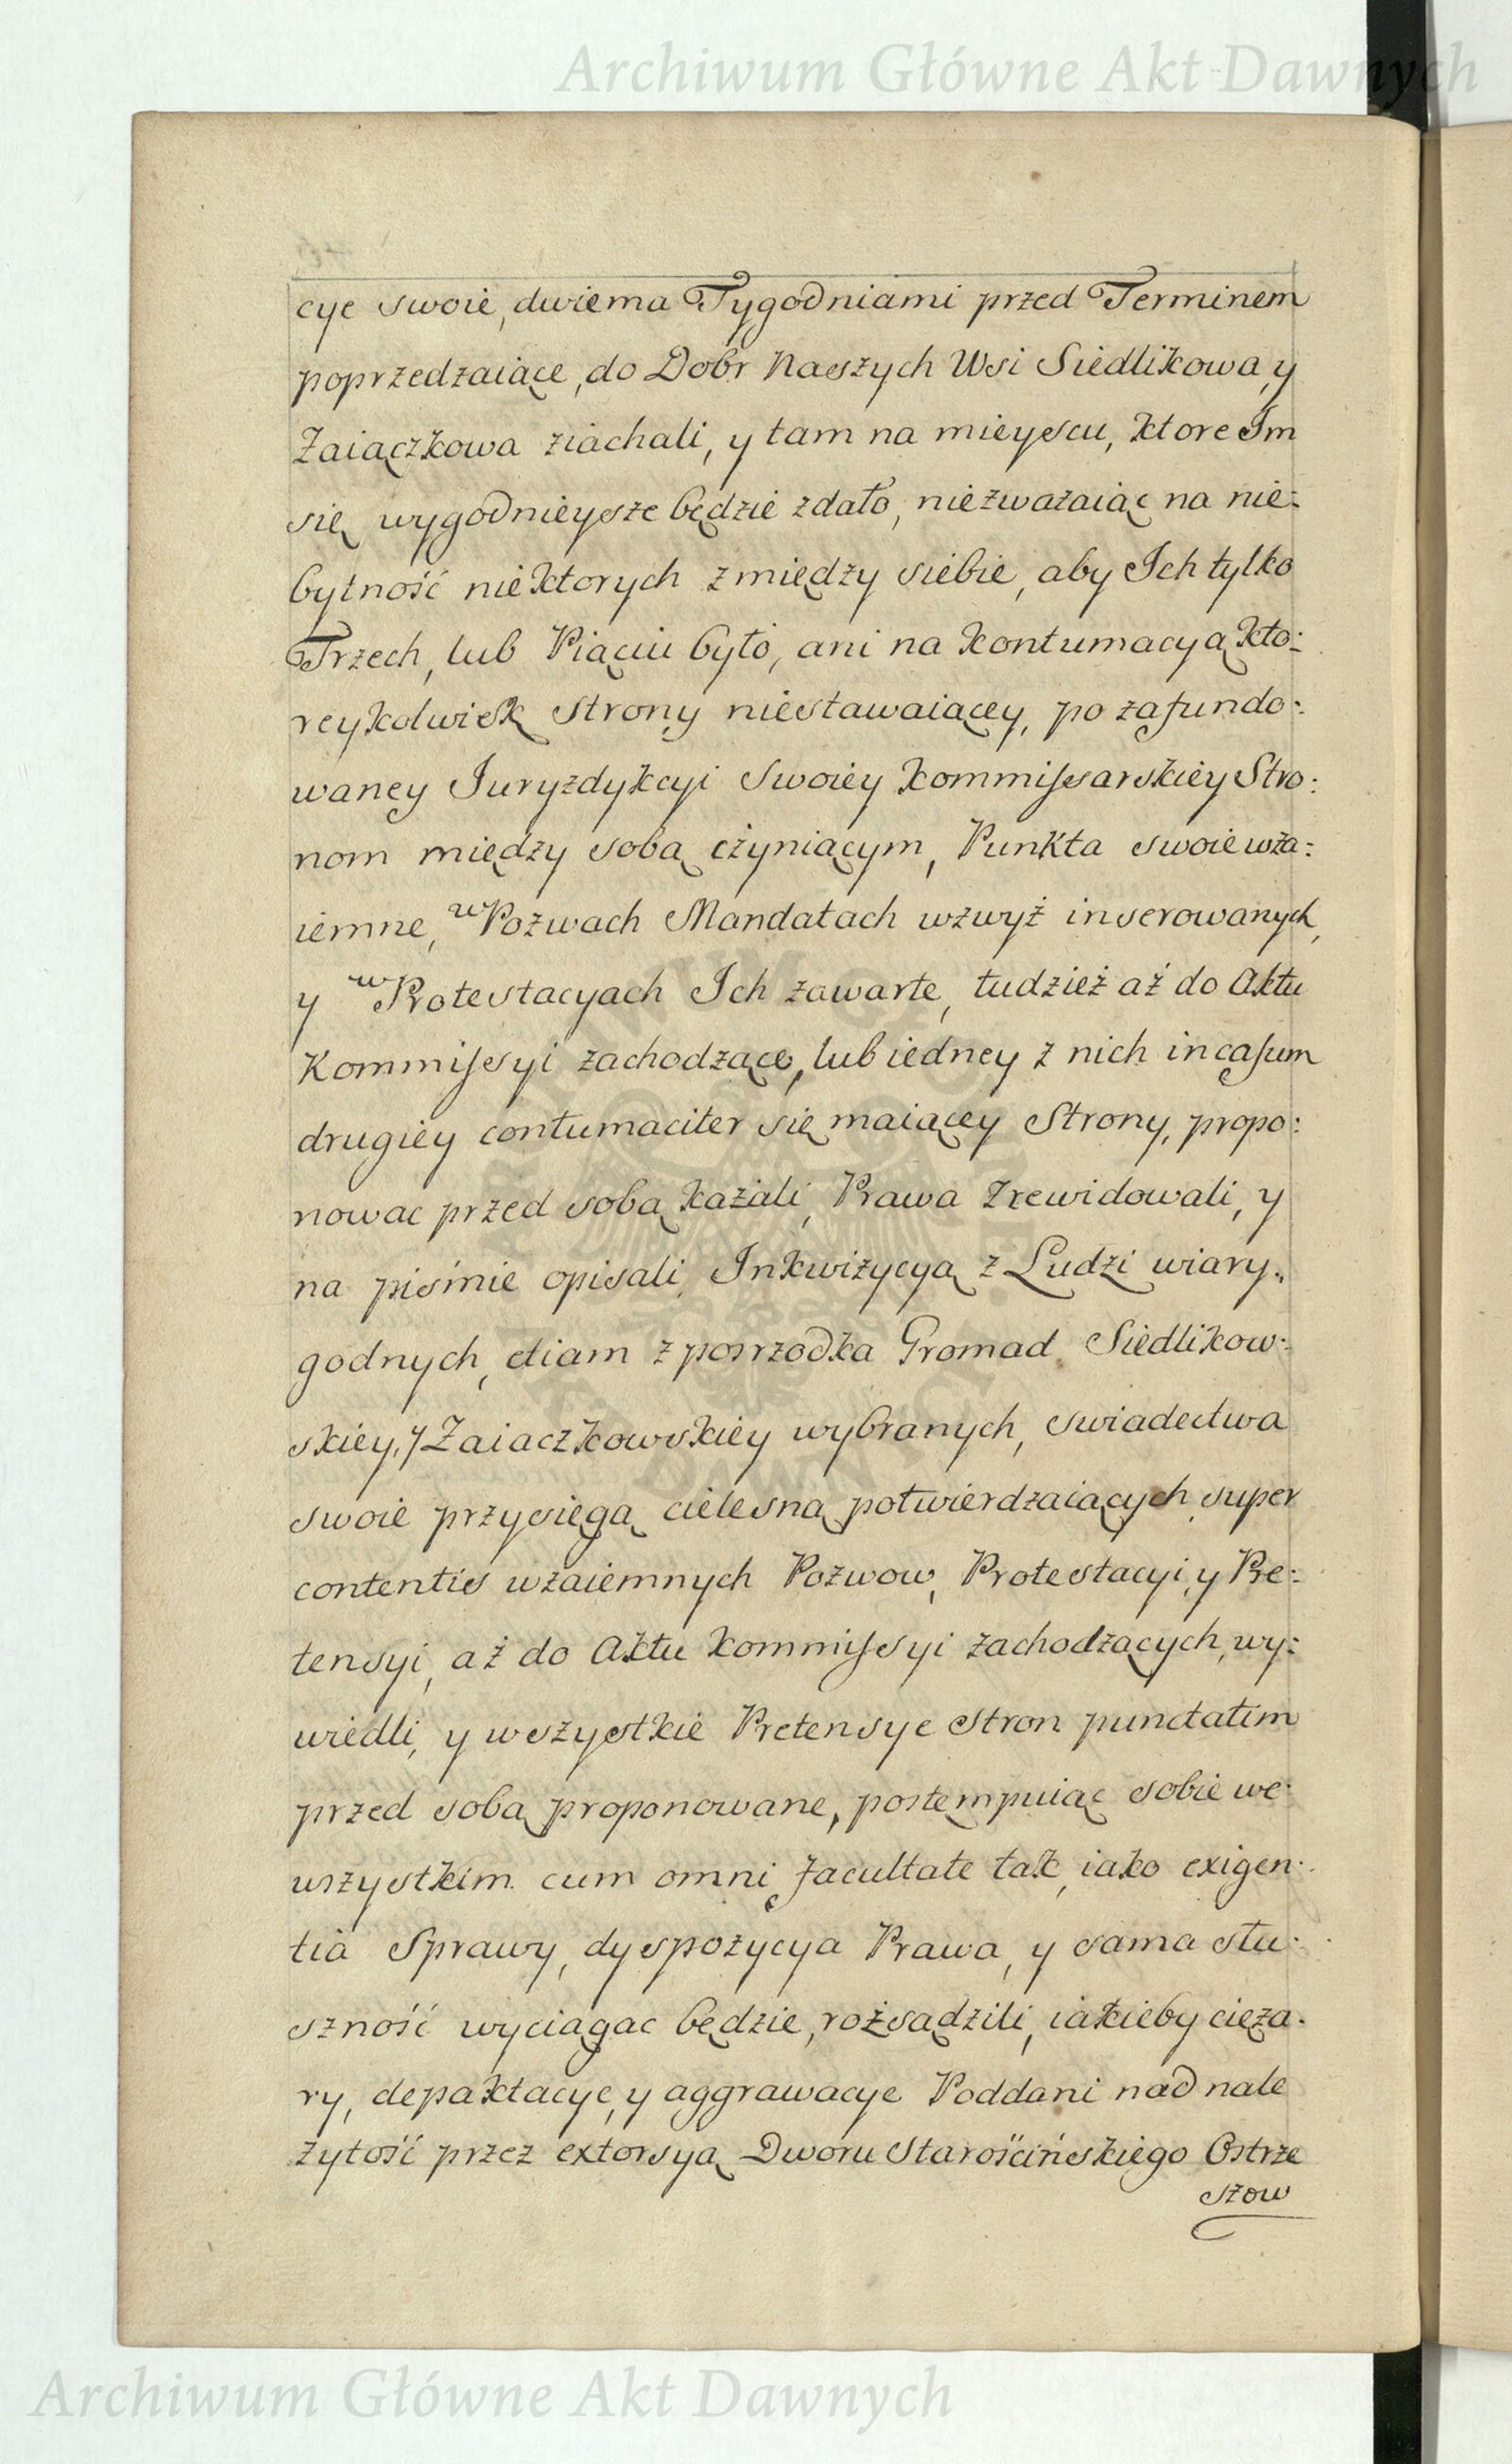 Archiwum Główne Akt Dawnych
cye swoie, dwiema Tygodniami przed Terminem
poprzedzaiące, do Dobr Naszych Wsi Siedlikowa, y
Zaiączkowa ziachali, y tam na mieyscu, ktore Im
się wygodnieysze będzie zdało, niezważaiąc na nie:
bytność niektorych z miedzy siebie, aby Ich tylko
Trzech, lub Piąciu było, ani na kontumacyą kto:
reykolwiek Strony niestawaiącey, po zafundo:
waney Juryzdykcyi Swoiey Kommissarskiey Stro:
nom między sobą czyniącym, Punkta swoie wza:
iemne, w Pozwach Mandatach wzwyż inserowanych,
y w Protestacyach Ich zawarte, tudzież aż do Aktu
Kommissyi zachodzące, lub iedney z nich in casum
drugiey contumaciter się maiącey Strony, propo:
nowac przed sobą każali, Prawa zrewidowali, y
na piśmie opisali, Inkwizycyą z Ludzi wiary„
godnych, etiam z posrzodka Gromad Siedlikow:
skiey, y Zaiaczkowskiey wybranych, swiadectwa
swoie przysięgą cielesną potwierdzaiących, super
contentis wzaiemnych Pozwow, Protestacyi, y Pre:
tensyi, aż do Aktu Kommissyi zachodzących, wy:
wiedli, y wszystkie Pretensye stron punctatim
przed sobą proponowane, postempuiąc sobie we
wszystkim cum omni facultate tak, iako exigen:
tia Sprawy, dyspozycya Prawa, y sama słu:
szność wyciągac będzie, rozsądzili, iakieby cięża:
ry, depaktacye, y aggrawacye Poddani nad nale
żytość przez extorsyą Dworu Starościńskiego Ostrze
szow
Archiwum Główne Akt Dawnych